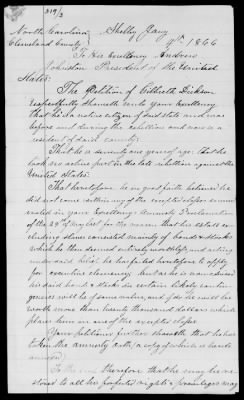 319/3
North Carolina Shelby Jany
Cleaveland County 7th 1866
To His Excellency Andrew
Johnston President of the United
States:
The Petition of
respectfully sheweth unto your Excellency
that he is a native citizen of said state and was
before and during the rebellion and now is a
resident of said county.
That he is seventy years of age. That he
took no active part in the late rebellion against the
United States.
That heretofore he in good faith believed he
did not come within any of the excepted classes enume
rated in your Excellency's Amnesty Proclamation
of the 29th of May last for the reason that his estate ex
cluding slaves consisted mainly of bonds & stocks
which he then deemed entirely worthless and acting
under said belief he has failed heretofore to apply
for executive clemency but as he is now advised
his said bonds & stocks in certain likely contin
gencies will be of some value, and if so he will be
worth more than twenty thousand dollars which
places him in one of the excepted classes.
Your petitioner further sheweth that he has
taken the amnesty oath (a copy of which is hereto
annexed)
therefore that he may be re
stored to all his forfeited rights & privileges may